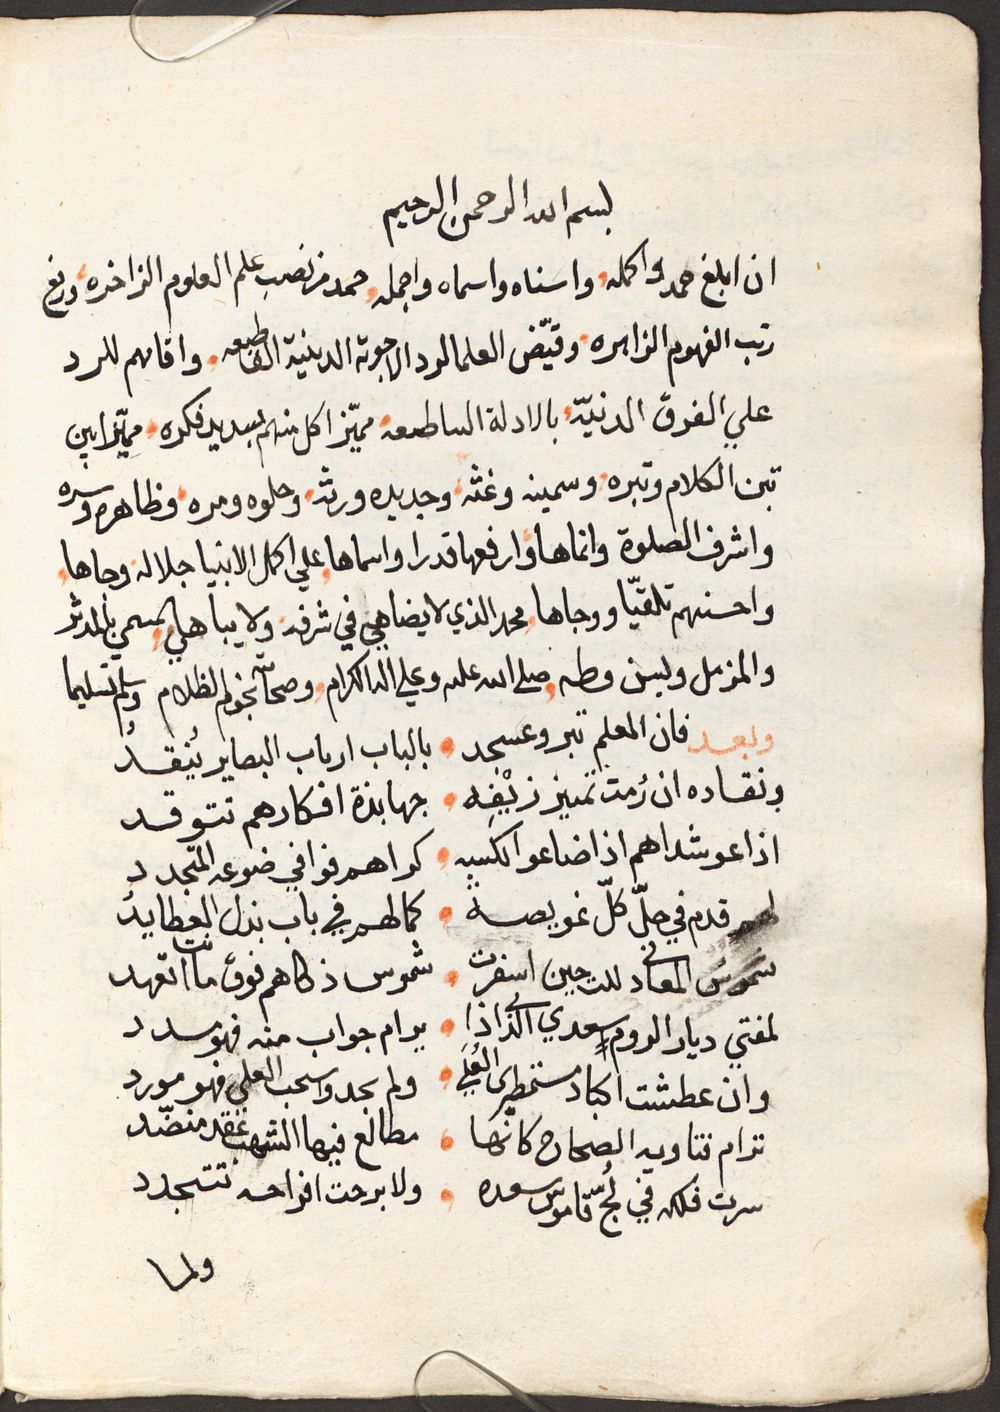 بسم الله الرحمن الرحيم
ان ابلغ حمد واكمله واسناه واسماه واجمله حمد من نصب علم العلوم الزاخره ورفع
رتب الفهوم الزاهره وقيّض العلما لرد الاجوبة الدينية القاطعه واقامهم للرد
علي الفرق الدنيّة بالادلة الساطعه مميّزا كل منهم بسديد فكره مميّزا بين
تبن الكلام وتبره وسمينه وغثه وجديده ورثه وحلوه ومره وظاهره وسره
واشرف الصلوة وانماها وارفعها قدرا واسماها علي اكمل الانبيا جلالة وجاها
واحسنهم تلقيّا ووجاها محمد الذي لا يضاهي في شرفه ولا يباهي المسمي بالمدثر
والمزمل ويسن وطه صلي الله عليه وعلي اله الكرام وصحابته نجوم الظلام وسلم تسليما
وبعد فان المعلم تبر وعسجد بالباب ارباب البصاير يُنقدُ
ونقاده ان رُمت تمييز زيْفِه جهابذة افكارهم تتوقد
اذاعو شداهم اذ اضاعو الكسبه كراهم فوافي ضوعه المتجدد
لهم قدم في حلّ كلّ غويصة كما لهم في باب بذل العطا يدُ
شموس المعاني اسفرت شموس ذكاهم فوق ما انت تعهد
لمفتي ديار الروم سعدي الذي اذا يرام جواب منه فهو مسدد
وان عطشت اكباد مستمطري العُلَي ولم يجدوا سحب العلي فهو مورد
ترام فتاويه الصحاح كانها مطالع فيها الشهب عقد منضّد
سرت فلكه في لُجّ قاموس سعده ولا برحت افراحه تتجدد
ولما